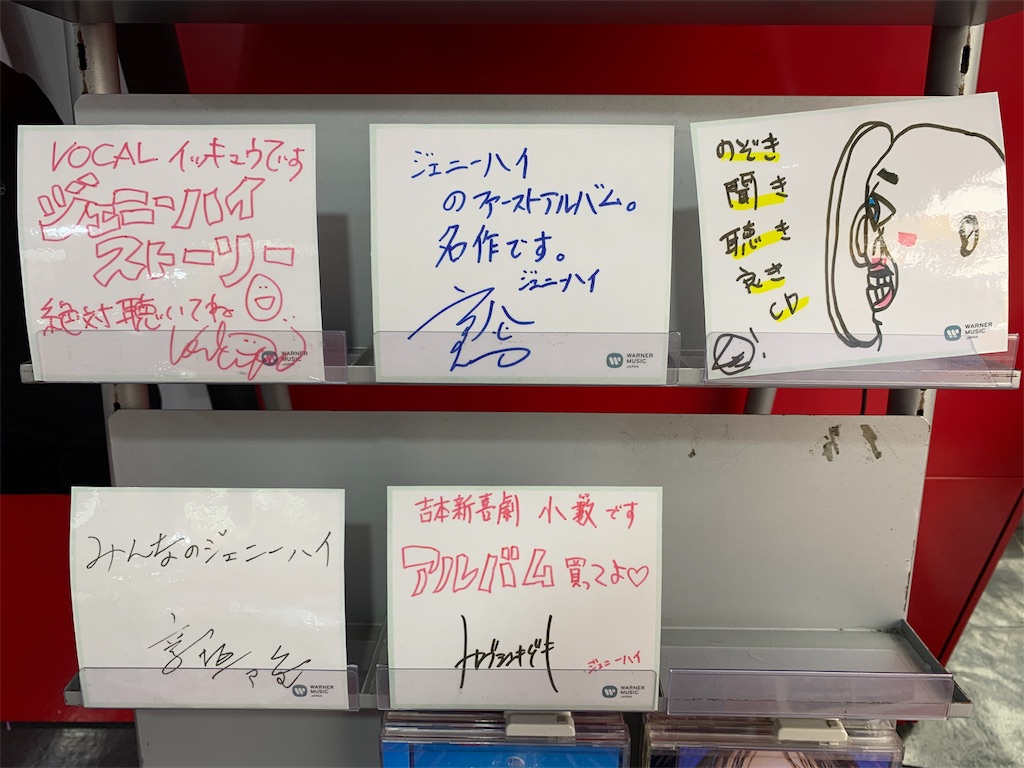 VOCAL イッキュウです
ジェニーハイ
ストーリー
絶対聴いてね
WARNER
MUSIC
JAPAN
ジェニーハイ
のファーストアルバム。
名作です。
ジェニーハイ
WARNER
MUSIC
JAPAN
のぞき
聞き
聴き
良き
CD
WARNER
MUSIC
JAPAN
みんなのジェニーハイ
WARNER
MUSIC
JAPAN
吉本新喜劇 小籔です
アルバム 買ってよ♡
ジェニーハイ
WARNER
MUSIC
JAPAN